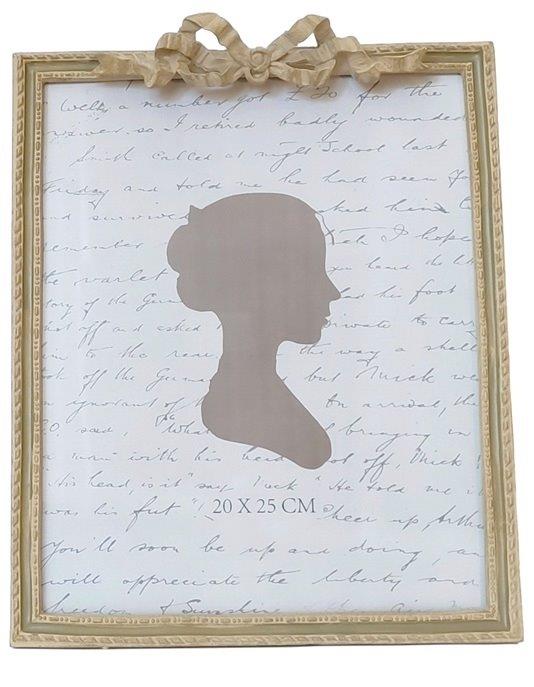 Well, a number got £20 for the
so I retired badly wounded
Smith called at night School last
Friday and told me he had seen
and survived ked him
remember I hope
the varlet you heard the
story of the Gun ad his foot
shot off and asked Private to carry
him to the rear the way a shell
took off the Gunn but Mick we
ignorant of On arrival, the
said, "What bringing in
a man with his head ot off, Mick
"His head, is it" say Mick "He told me i
was his fut" 20 X 25 CM Cheer up Arthu
You'll soon be up and doing, an
will appreciate the liberty and
freedom & Sunshin